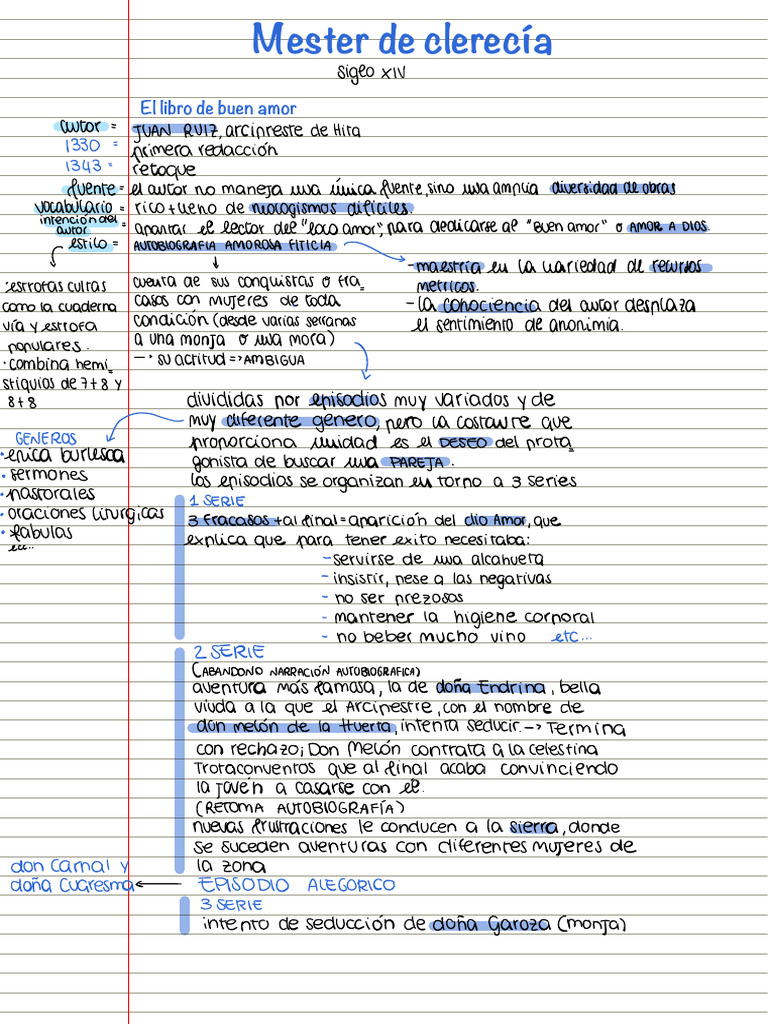 Mester de clerecía
siglo XIV
El libro de buen amor
autor = JUAN RUIZ, arcipreste de Hita
1330 = primera redacción
1343 = retoque
fuente = el autor no maneja una única fuente, sino una amplia diversidad de obras
vocabulario = rico + lleno de neologismos difíciles.
intención del autor = apartar el lector del "loco amor", para dedicarse al "Buen amor" o AMOR A DIOS.
estilo = AUTOBIOGRAFIA AMOROSA FITICIA
:estrofas cultas
como la cuaderna
vía y estrofa
populares.
· combina hemi_
stiquios de 7+8 y
8+8
cuenta de sus conquistas o fra_
casos con mujeres de toda
condición (desde varias serranas
a una monja o una mora)
—> su actitud => AMBIGUA
- maestría en la variedad de recursos
metricos.
- la conociencia del autor desplaza
el sentimiento de anonimia.
divididas por episodios muy variados y de
muy diferente genero, pero la costante que
proporciona unidad es el DESEO del prota_
gonista de buscar una PAREJA.
los episodios se organizan en torno a 3 series
GENEROS
· epica burlesca
· sermones
· pastorales
· oraciones liturgicas
· fabulas
etc..
1 SERIE
3 fracasos + al final = aparición del dio Amor, que
explica que para tener exito necesitaba:
- servirse de una alcahueta
- insistir, pese a las negativas
- no ser prezosos
- mantener la higiene corporal
- no beber mucho vino etc...
2 SERIE
(ABANDONO NARRACIÓN AUTOBIOGRAFICA)
aventura más famosa, la de doña Endrina, bella
viuda a la que el Arcipestre, con el nombre de
don melón de la Huerta, intenta seducir. —> Termina
con rechazo; Don Melón contrata a la celestina
Trotaconventos que al final acaba convinciendo
la joven a casarse con él.
(RETOMA AUTOBIOGRAFÍA)
nuevas frustraciones le conducen a la sierra, donde
se suceden aventuras con diferentes mujeres de
la zona
don Carnal y
doña Cuaresma <— EPISODIO ALEGORICO
3 SERIE
intento de seducción de doña Garoza (monja)